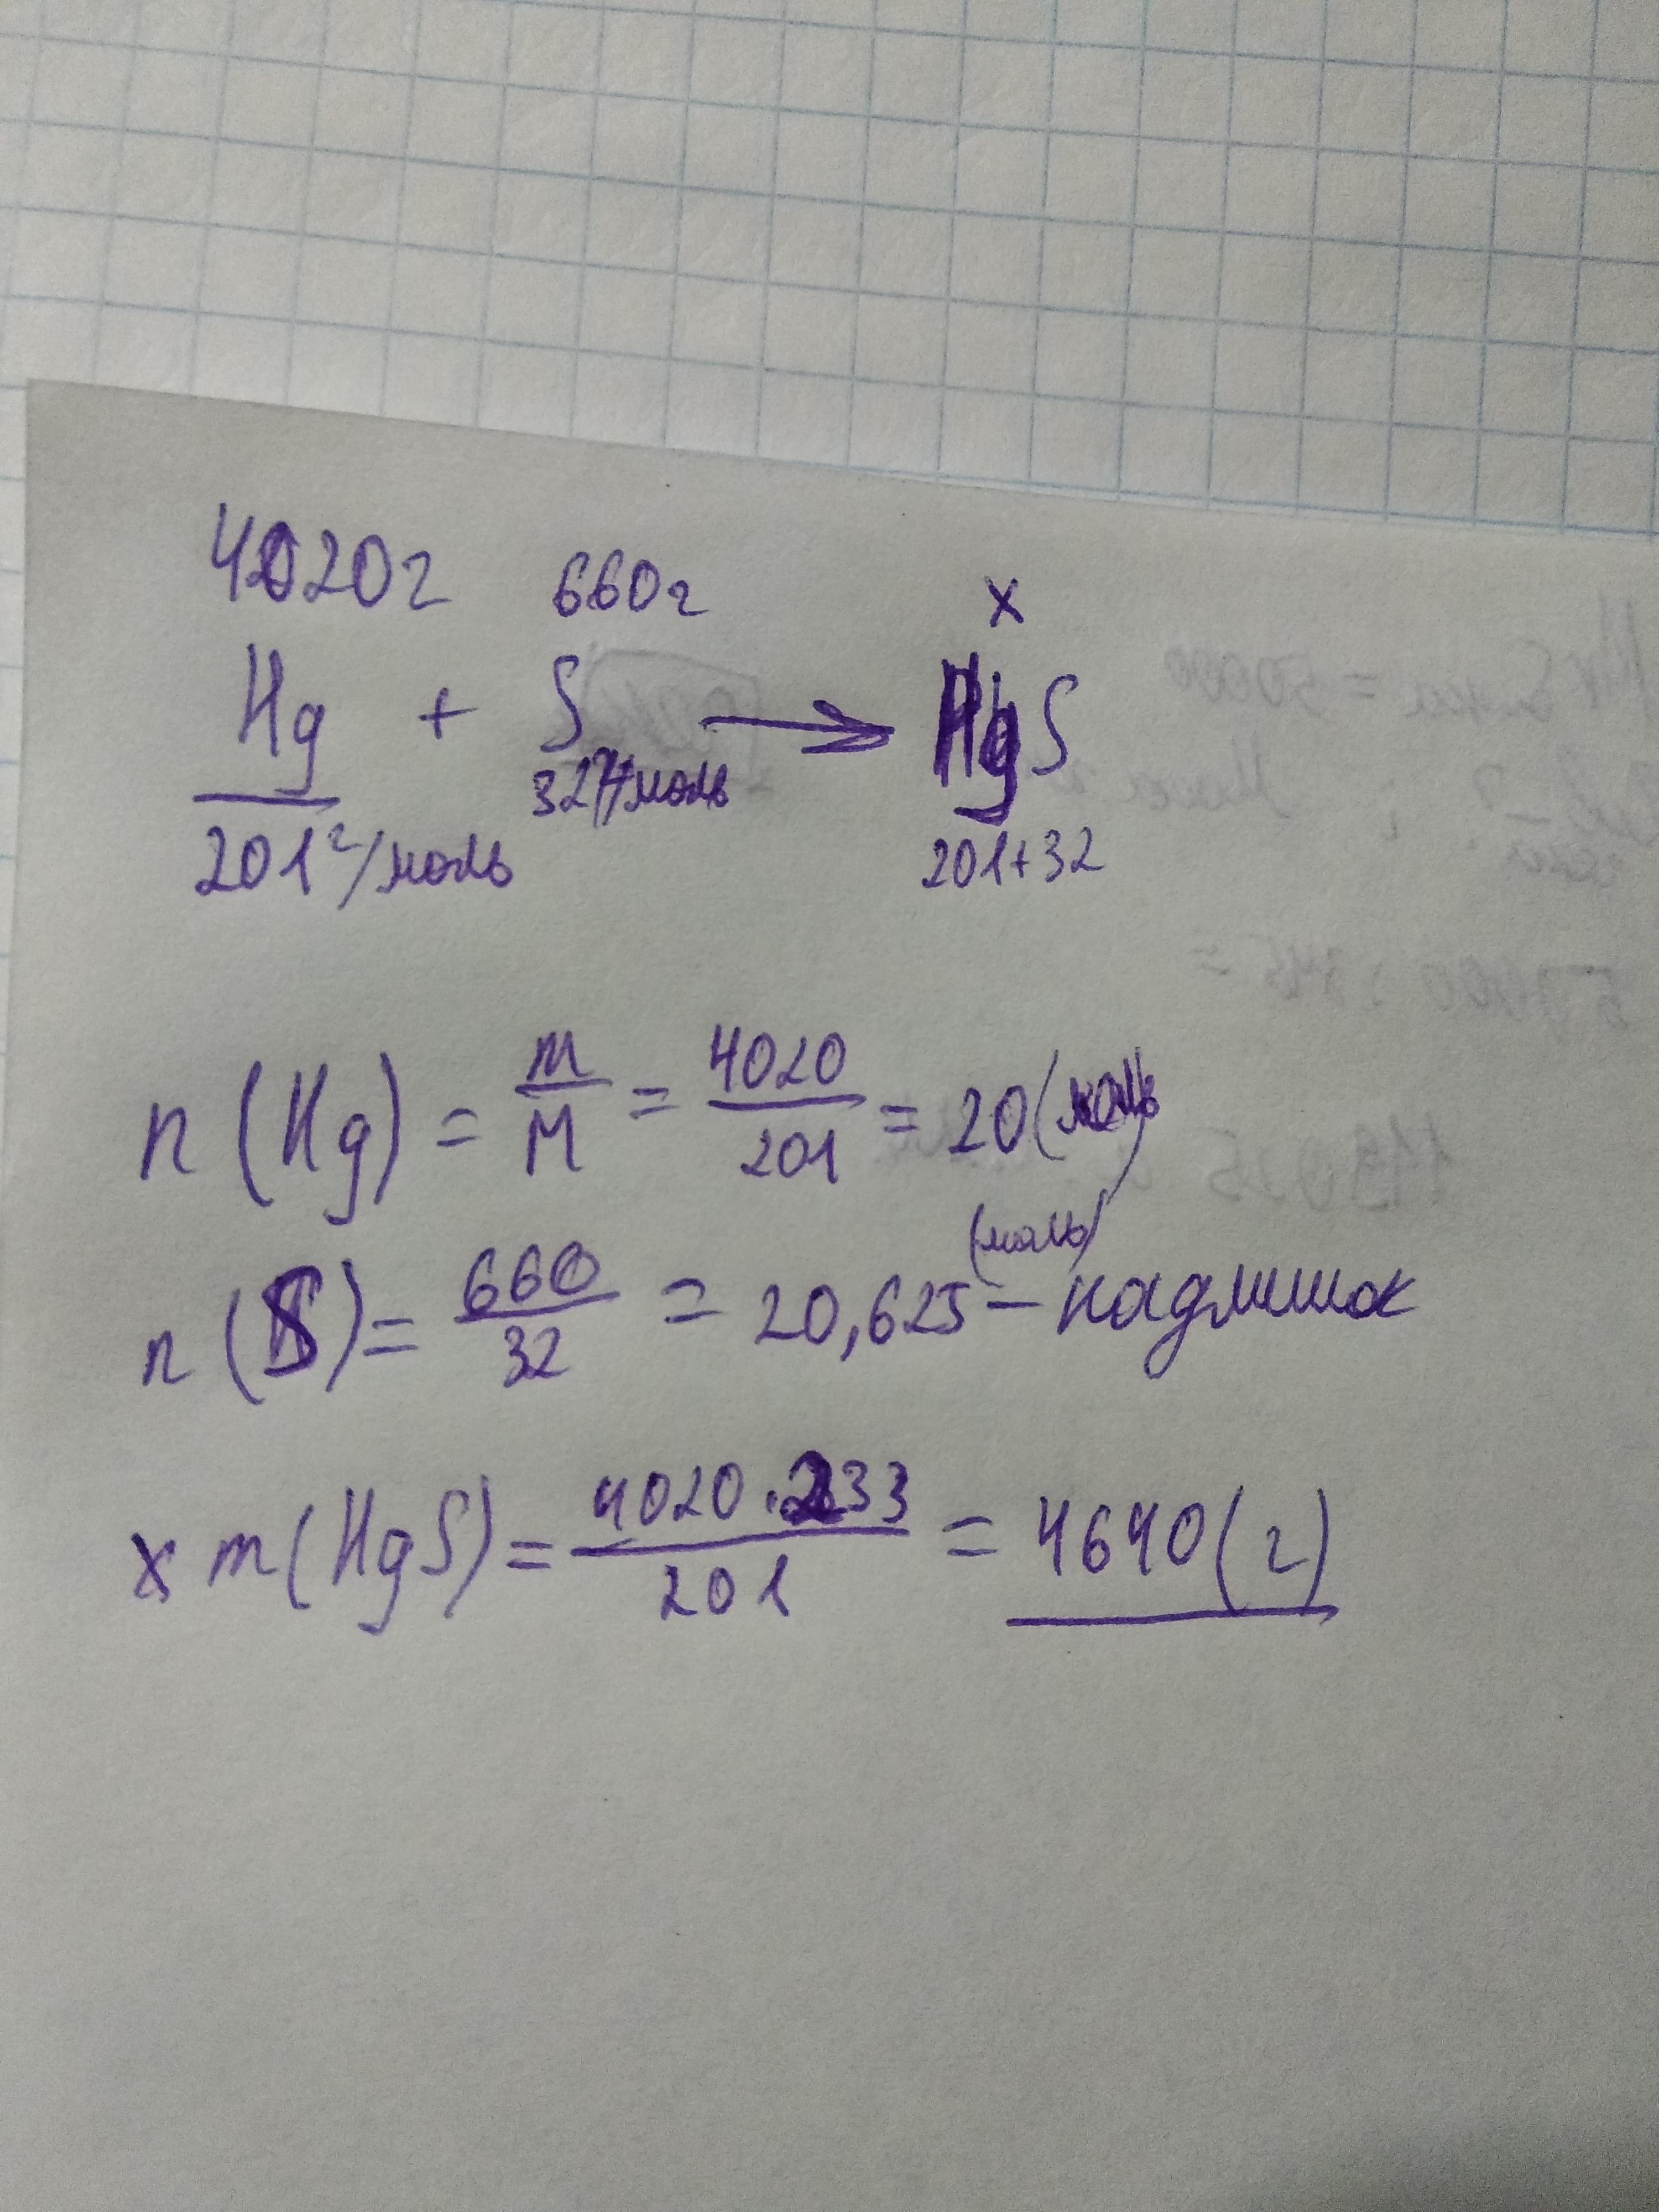 4020г 660г x
Hg + S → HgS
201 г/моль 32 г/моль 201+32
n (Hg) = m/M = 4020/201 = 20 (моль)
n (S) = 660/32 = 20,625 (моль) — надлишок
x m(HgS) = 4020·233/201 = 4640 (г)